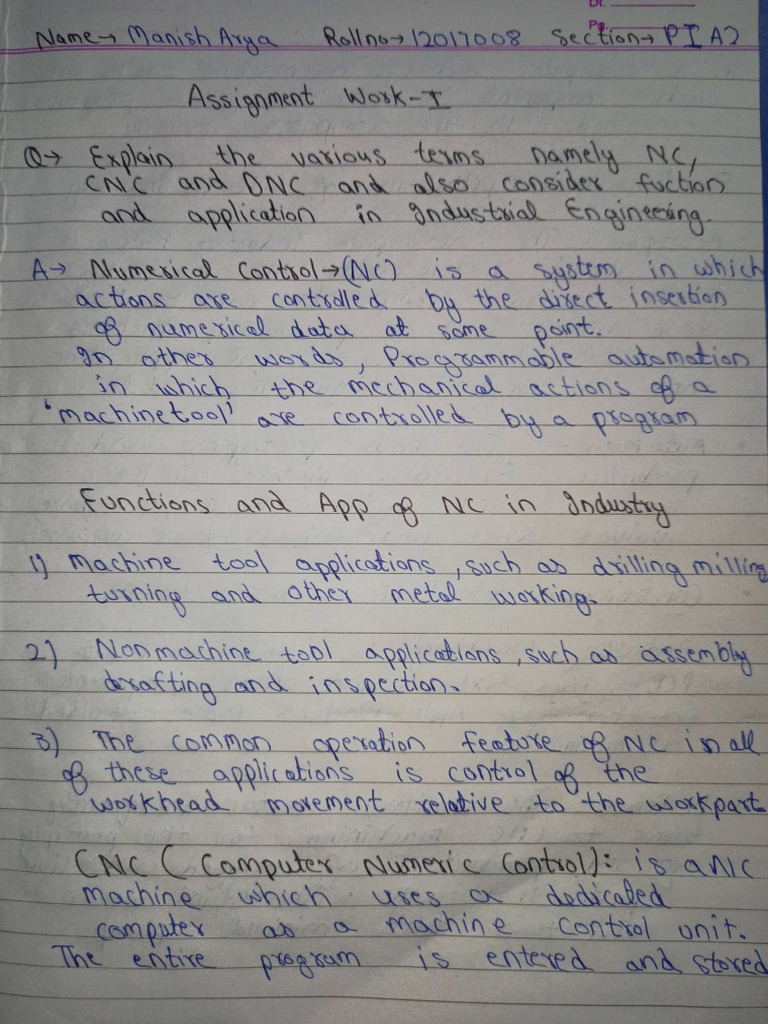 Dt.
Pg.
Name→ Manish Arya Rollno→ 12017008 Section→ PI A2
Assignment Work-I
Q→ Explain the various terms namely NC,
CNC and DNC and also consider fuction
and application in Industrial Engineering.
A→ Numerical Control→(NC) is a system in which
actions are controlled by the direct insertion
of numerical data at some point.
In other words, Programmable automation
in which the mechanical actions of a
'machine tool' are controlled by a program
Functions and App of NC in Industry
1) Machine tool applications, such as drilling milling
turning and other metal working.
2) Nonmachine tool applications, such as assembly
drafting and inspection.
3) The common operation feature of NC in all
of these applications is control of the
workhead movement relative to the workpart
CNC ( Computer Numeric Control): is a NC
machine which uses a dedicated
computer as a machine control unit.
The entire program is entered and stored